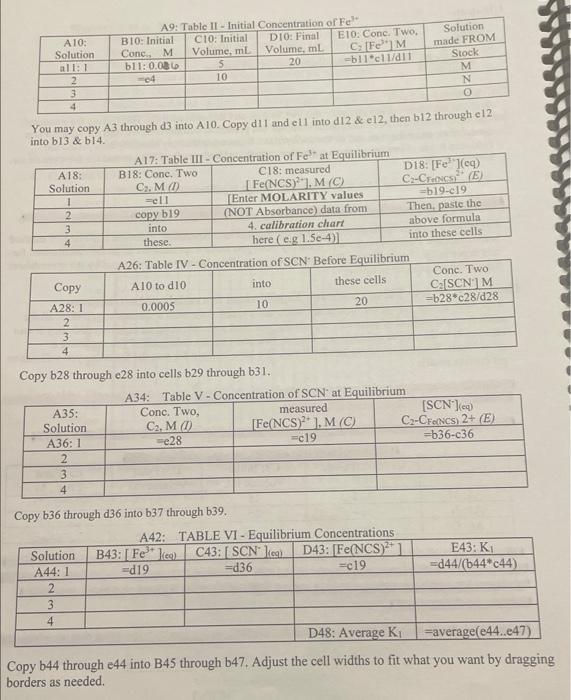 A9: Table II - Initial Concentration of Fe³⁺
A10: Solution | B10: Initial Conc., M | C10: Initial Volume, mL | D10: Final Volume, mL | E10: Conc. Two, C₂ [Fe³⁺] M | Solution made FROM
a11: 1 | b11: | 5 | 20 | =b11*c11/d11 | Stock
2 | =e4 | 10 | M
3 | N
4 | O
You may copy A3 through d3 into A10. Copy d11 and e11 into d12 & e12, then b12 through e12
into b13 & b14.
A17: Table III - Concentration of Fe³⁺ at Equilibrium
A18: Solution | B18: Conc. Two C₂, M (I) | C18: measured [ Fe(NCS)²⁺], M (C) | D18: [Fe³⁺](eq) C₂-C_Fe(NCS)²⁺ (E)
1 | =e11 | [Enter MOLARITY values | =b19-c19
2 | copy b19 | (NOT Absorbance) data from | Then, paste the
3 | into | 4. calibration chart | above formula
4 | these. | here ( e.g 1.5e-4)] | into these cells
A26: Table IV - Concentration of SCN⁻ Before Equilibrium
Copy | A10 to d10 | into | these cells | Conc. Two C₂[SCN⁻] M
A28: 1 | 0.0005 | 10 | 20 | =b28*c28/d28
2
3
4
Copy b28 through e28 into cells b29 through b31.
A34: Table V - Concentration of SCN⁻ at Equilibrium
A35: Solution | Conc. Two, C₂, M (I) | measured [Fe(NCS)²⁺ ], M (C) | [SCN⁻](eq) C₂-C_Fe(NCS) 2+ (E)
A36: 1 | =e28 | =c19 | =b36-c36
2
3
4
Copy b36 through d36 into b37 through b39.
A42: TABLE VI - Equilibrium Concentrations
Solution | B43: [ Fe³⁺ ](eq) | C43: [ SCN⁻ ](eq) | D43: [Fe(NCS)²⁺ ] | E43: K₁
A44: 1 | =d19 | =d36 | =c19 | =d44/(b44*c44)
2
3
4
D48: Average K₁ | =average(e44..e47)
Copy b44 through e44 into B45 through b47. Adjust the cell widths to fit what you want by dragging
borders as needed.